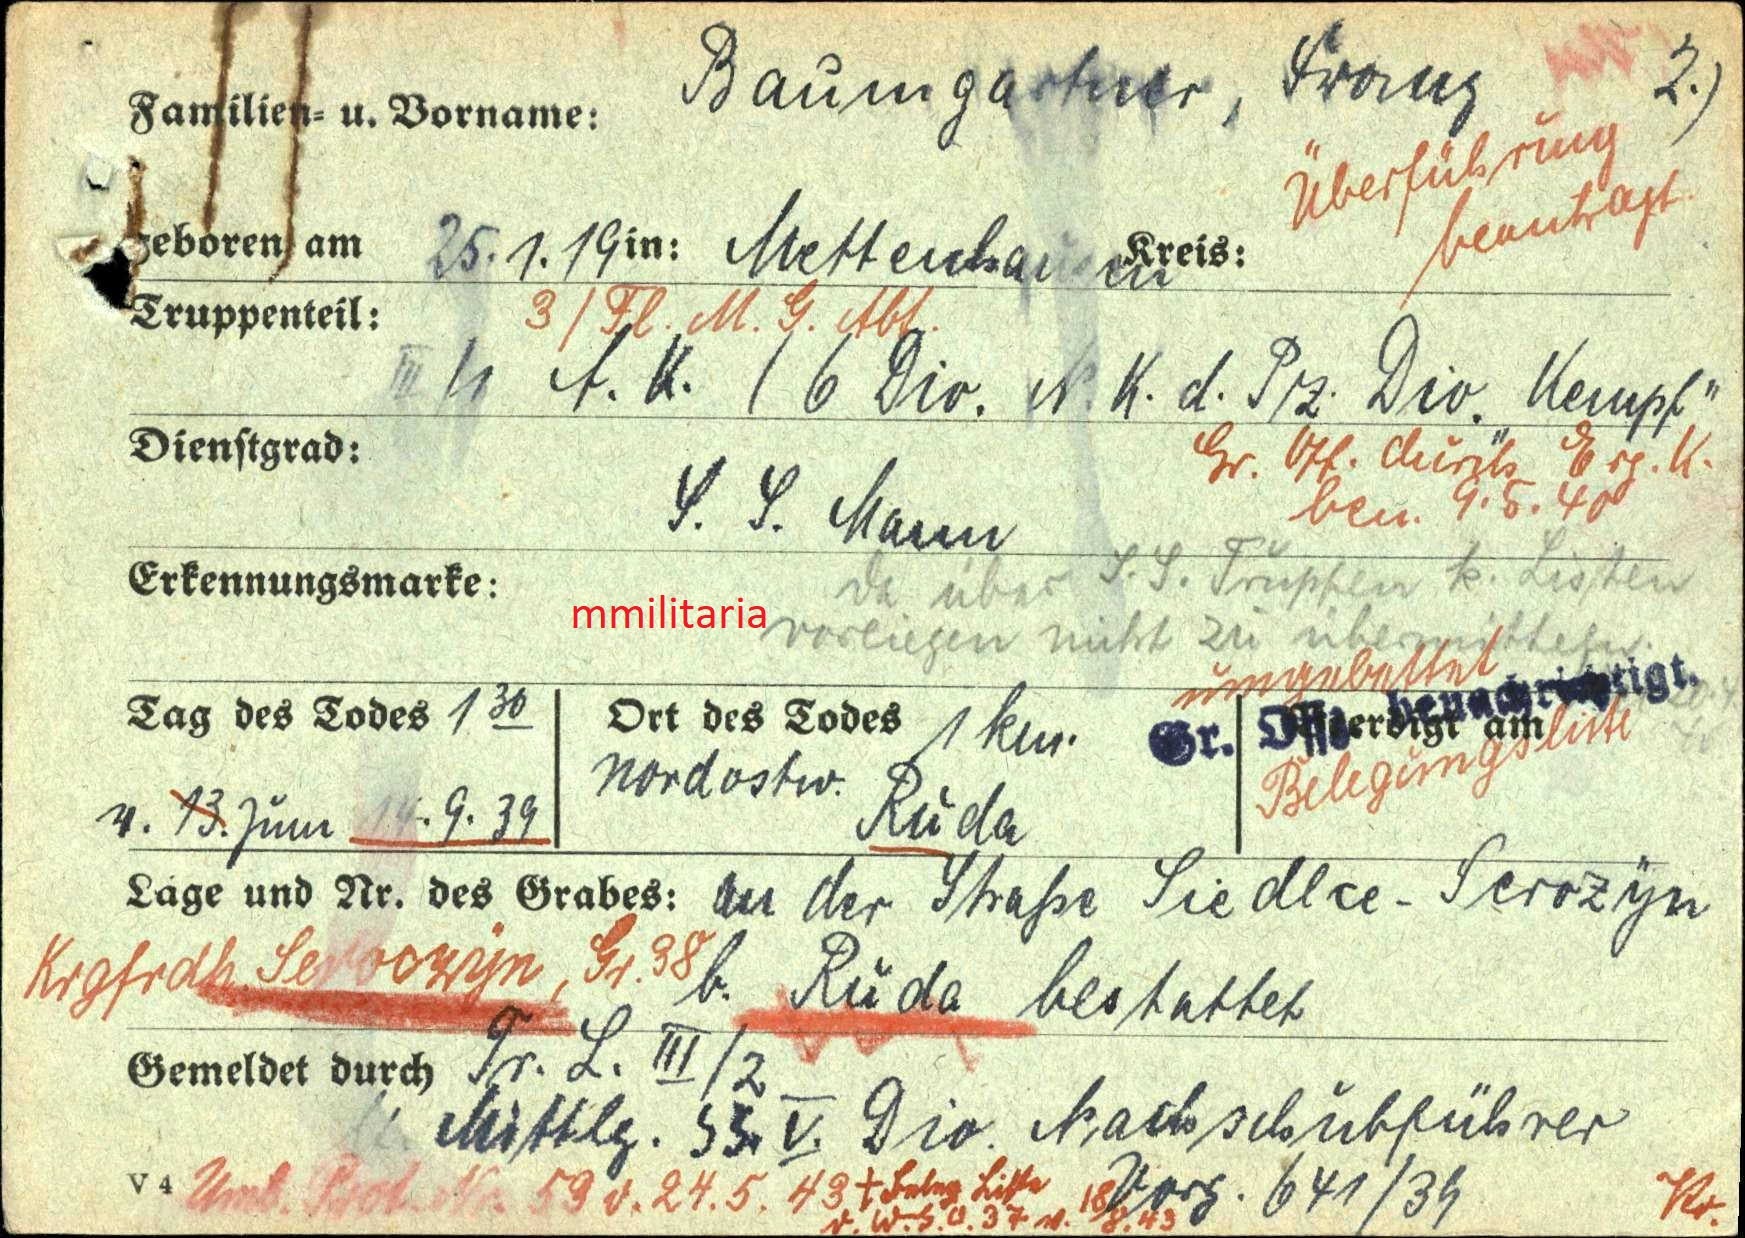 Familien- u. Vorname: Baumgartner, Franz 2.)
Überführung
beantragt.
Geboren am 25.1.19 in: Mettenhausen Kreis:
Truppenteil: 3/ Fl. M. G. Abt.
A. K. (6 Div. N. K. d. Pz. Div. Kempf"
Dienstgrad: Gr. Off. durch Erg. K.
ben. 9.5.40
S. S. Mann
Erkennungsmarke: da über S.S. Truppen k. Listen
mmilitaria
vorliegen nicht zu übermitteln.
umgebettet
Tag des Todes 1 30 Ort des Todes 1 km. Gr. Offz. benachrichtigt. Beerdigt am
nordostw. Belegungsliste
v. 13. zum 14.9.39 Ruda
Lage und Nr. des Grabes: an der Straße Siedlce - Serozyn
Krgfrdh. Seroczyn, Gr. 38 b. Ruda bestattet
Gemeldet durch Tr. L. III/2
Mittlg. SS. V. Div. Nachschubführer
V 4 Umb. Prot. Nr. 59 v. 24.5.43 + Beleg Liste Vorg. 641/39 Kr.
v. W.S.O. 37 v. 18/8.43